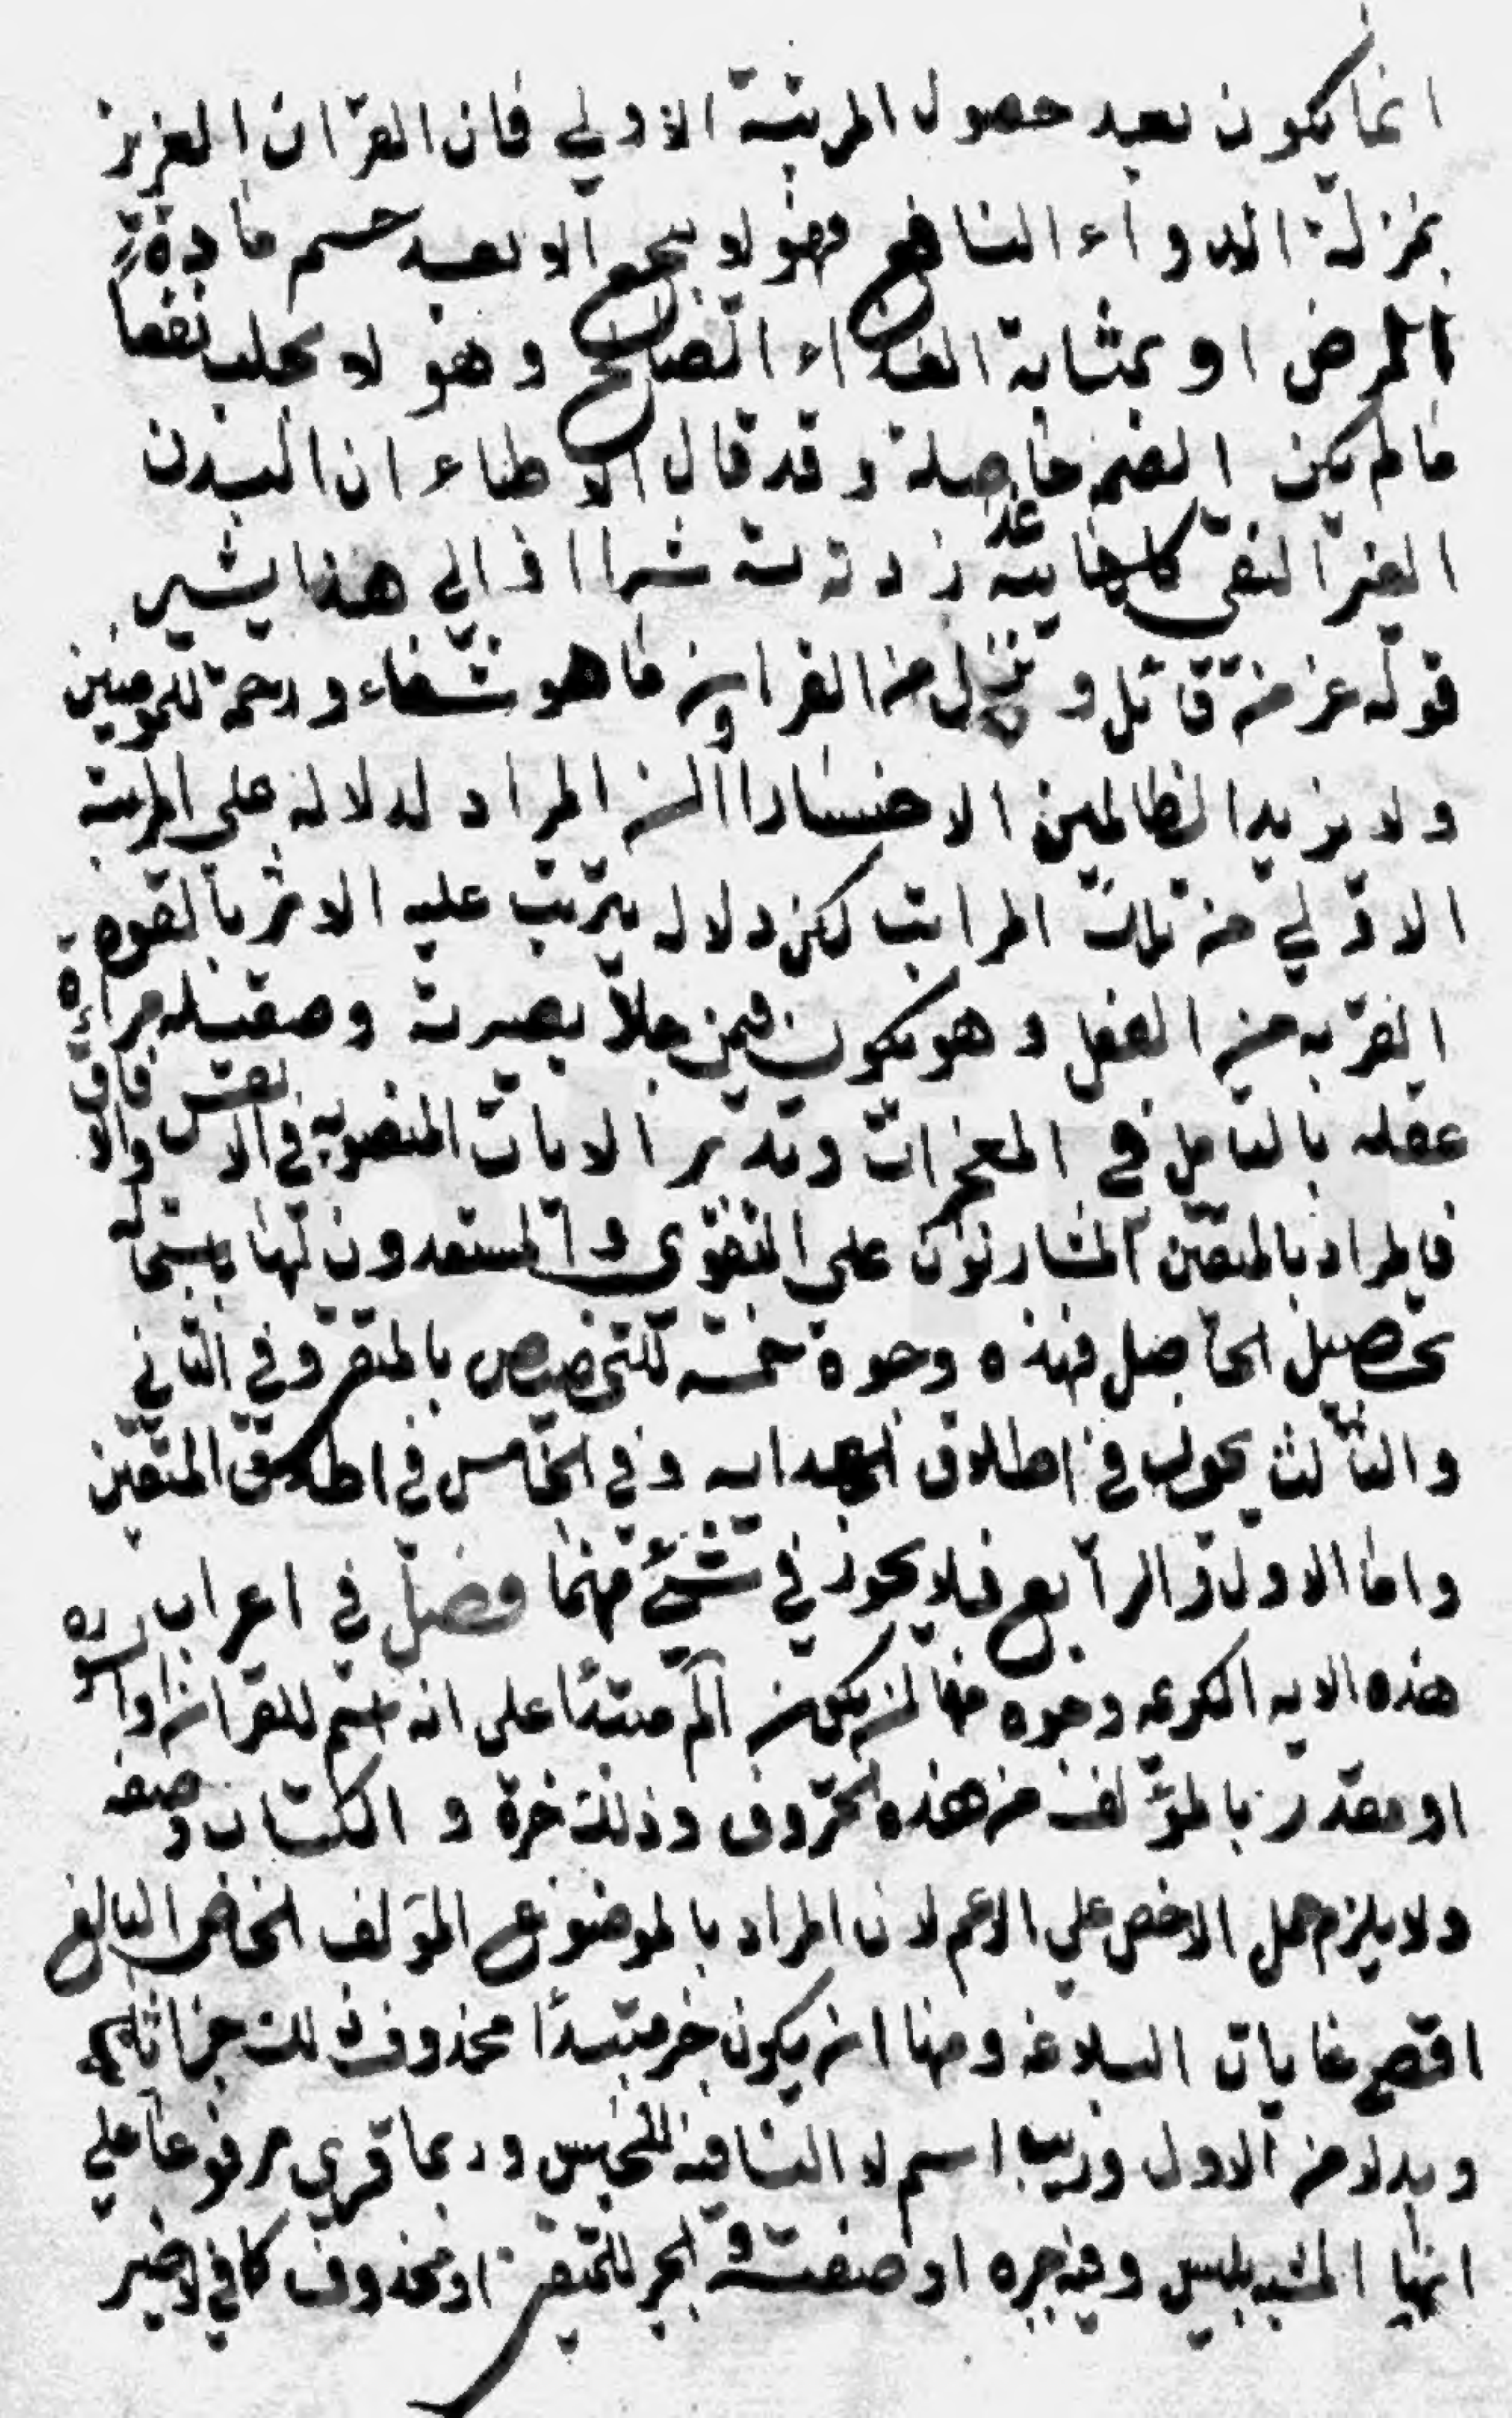 انما يكون بعد حصول المرتبة الاولي فان القران العزيز
بمنزلة الدواء النافع فهو لا ينجع الا بعد حسم مادة
المرض او بمثابة الغذاء الصالح وهو لا يجلب نفعا
ما لم يكن الصحة حاصلة وقد قال الاطباء ان البدن
الغير النقي كلما غذيته زدته شرا والي هذا يشير
قوله عز من قائل وننزل من القران ما هو شفاء ورحمة للمومنين
ولا يزيد الظالمين الا خسارا المراد الدلالة علي المرتبة
الاولي من تلك المراتب لكن دلالة يترتب عليه الاثر بالقوة
القريبه من الفعل وهو يكون فيمن جلا بصيرته وصقيله مراة
عقله بالتامل في المعجزات وتدبر الايات المنصوبه في الانفس والافاق
فالمراد بالمتقين المشارفون علي التقوي والمستعدون لها يستحاله
تحصيل الحاصل فهذه وجوه خمسة للتخصيص بالمتقين وفي الثاني
والثالث تجوز في اطلاق الهدايه وفي الخامس في اطلاق المتقين
واما الاول والرابع فلا تجوز في شيء منهما فصل في اعراب
هذه الايه الكريمه وجوه منها ان يكون الم مبتدئا علي انه اسم للقران او السوره
او مقدر بالمؤلف من هذه الحروف وذلك خبره والكتاب صفه
ولا يلزم حمل الاخص علي الاعم لان المراد بالموضوع المؤلف الخاص البالغ
اقصي غايات البلاغه ومنها ان يكون خبر مبتدا محذوف وذلك خبرا ثانيا
وبدلا من الاول وريب اسم لا النافية للجنس وربما قري مرفوعا علي
انها المشبه بليس وفيه خبره او صفته والخبر للمتقين او محذوف كما في لا ضير